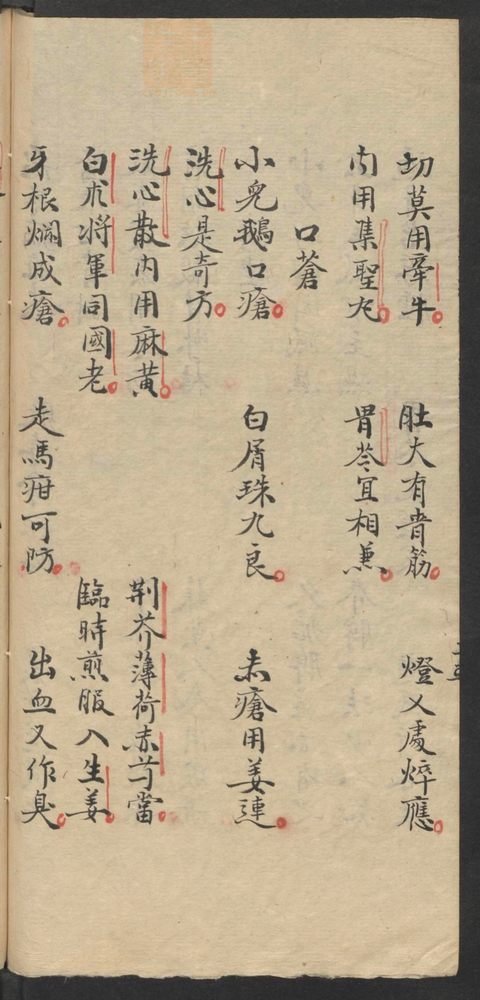 切莫用牽牛 肚大有青筋 燈火處焠應
內用集聖丸 胃苓宜相兼
口蒼
小児鵝口瘡 白屑珠九良 赤瘡用姜連
洗心是奇方
洗心散內用麻黃 荆芥薄荷赤芍當
白朮將軍同國老 臨時煎服入生姜
牙根爛成瘡 走馬疳可防 出血又作臭